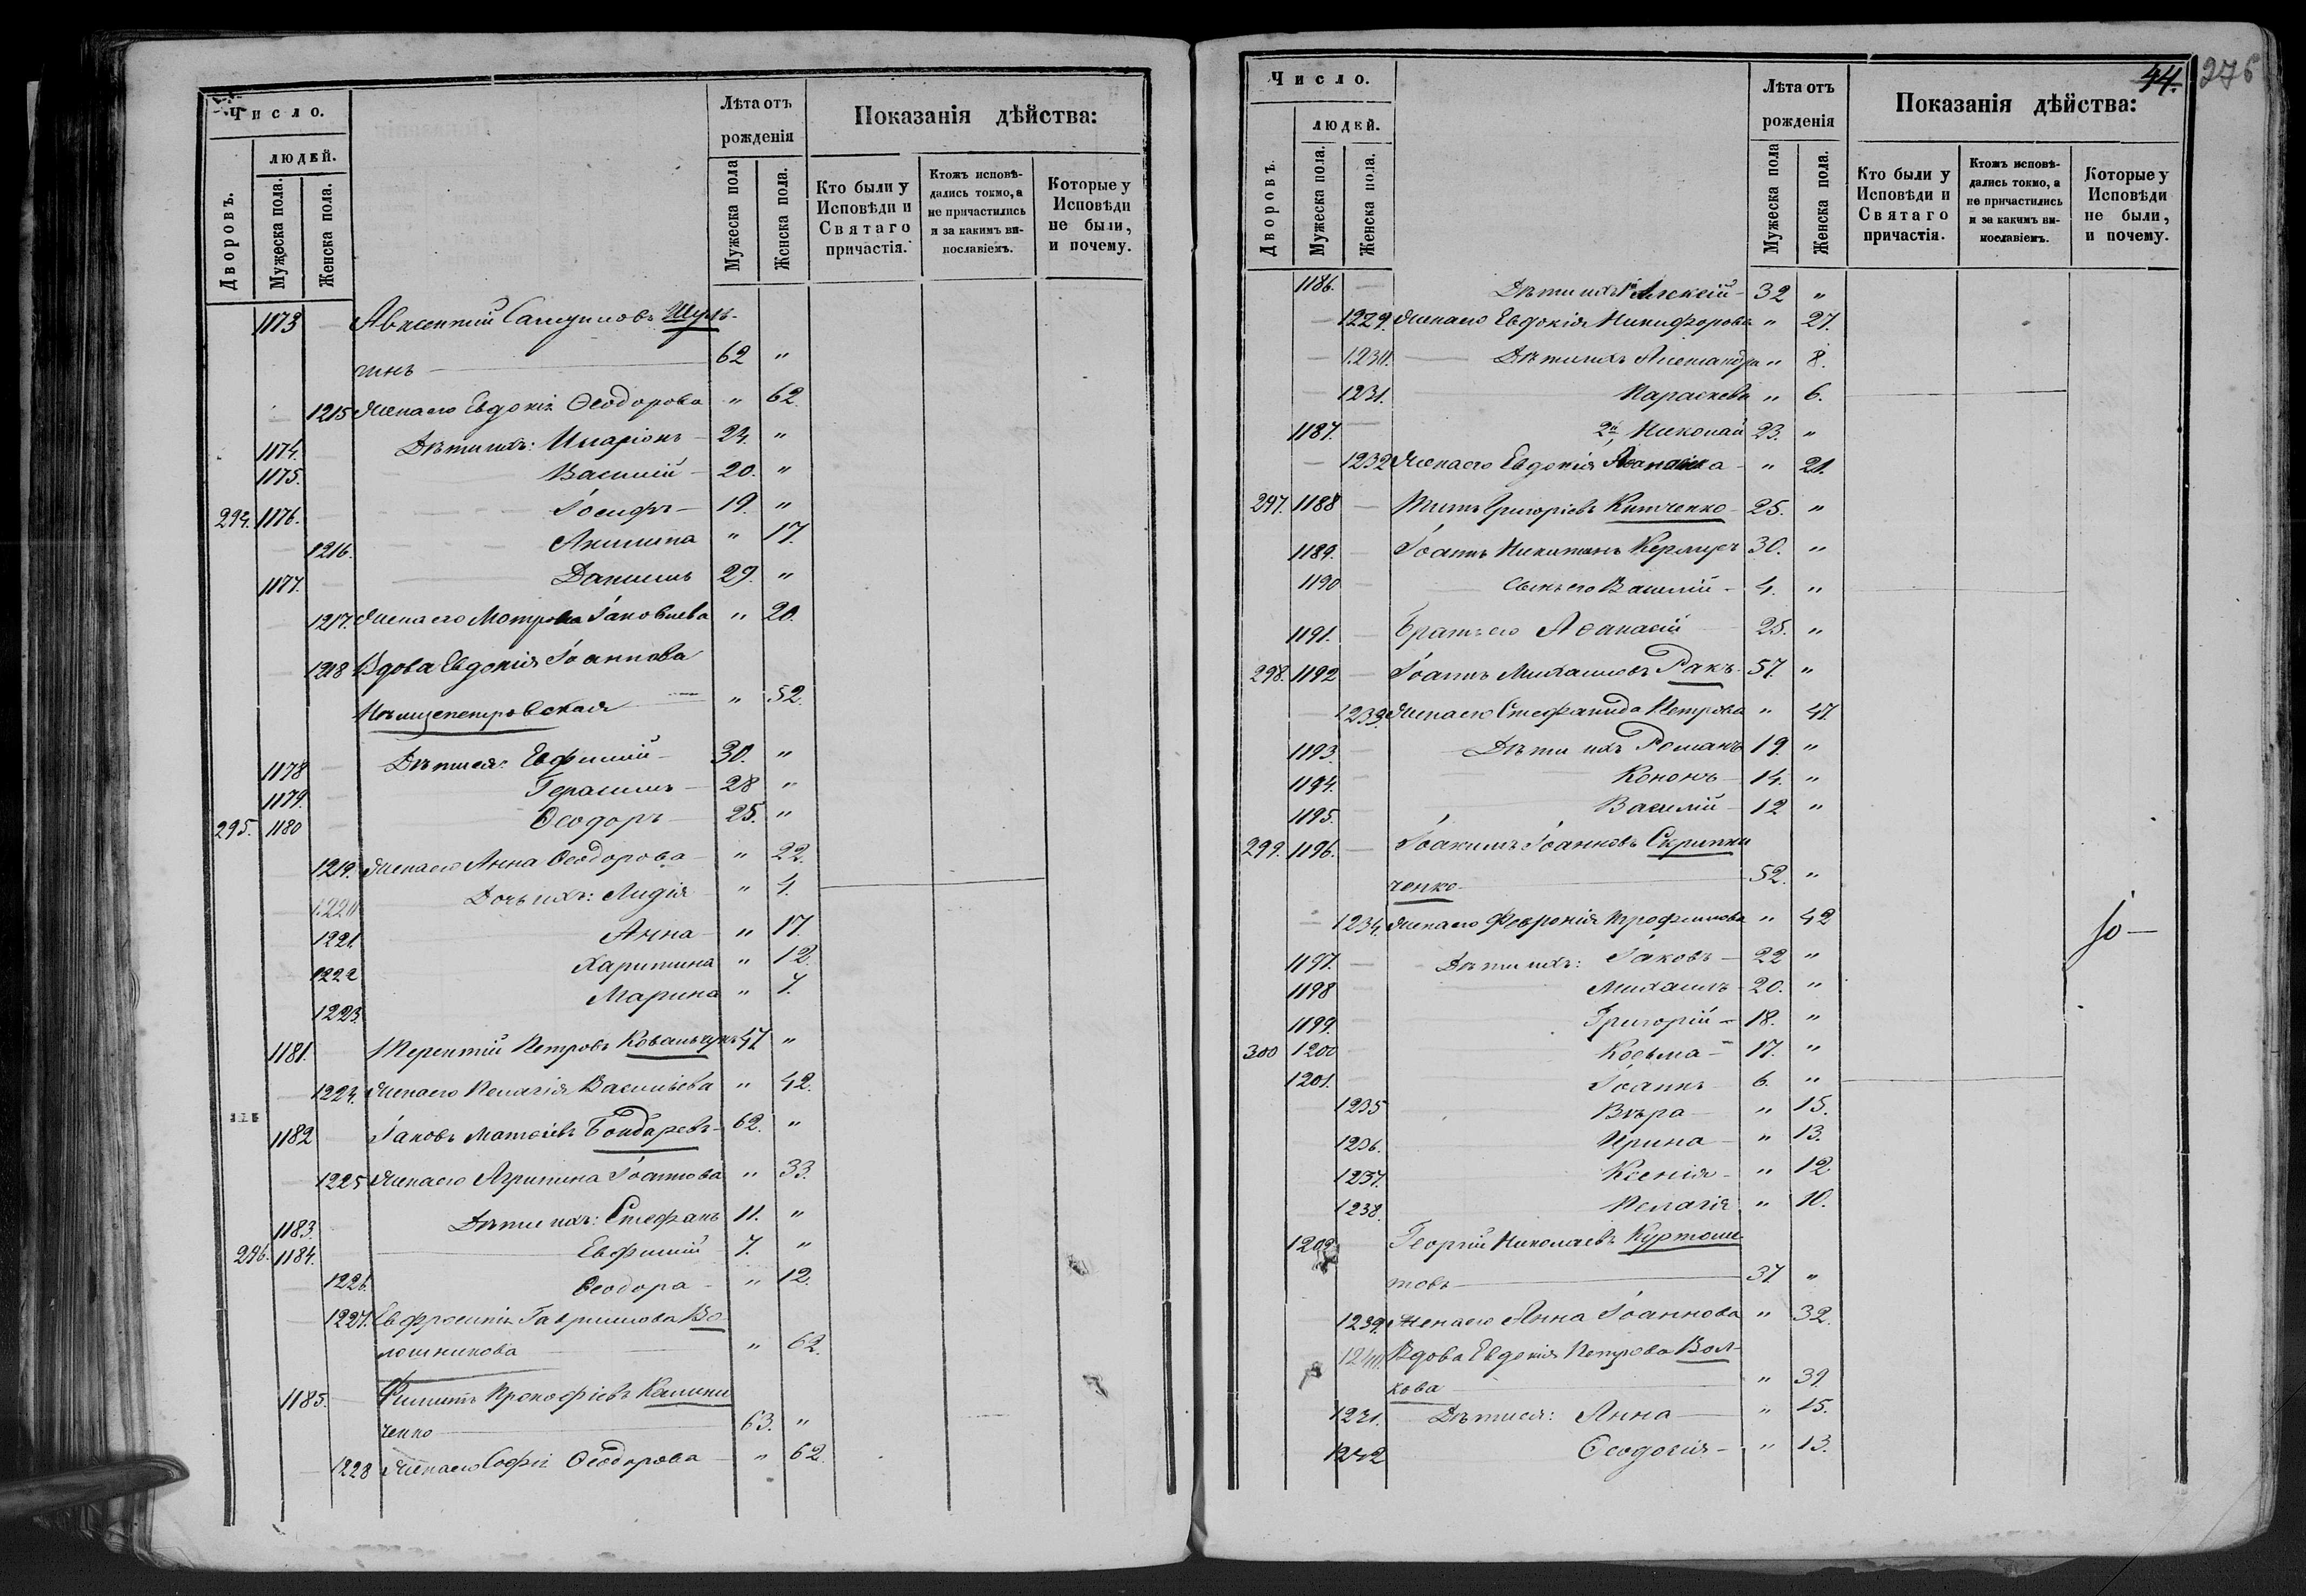 Число.
людей.
Дворовъ.
Мужеска пола.
Женска пола.
Лѣта отъ рожденія
Мужеска пола
Женска пола.
Показанія дѣйства:
Кто были у Исповѣди и Святаго причастія.
Ктожъ исповѣ-
дались токмо, а
не причастились
и за какимъ ви-
нословіемъ.
Которые у
Исповѣди
не были,
и почему.
1173 Авксентий Самуиловъ Шуль-
тинъ 62 "
1215 Жена его Евдокія Ѳеодорова " 62
1174. Дѣти ихъ: Иларіонъ 24. "
1175. Василій 20. "
294. 1176. Іосифъ 19. "
1216. Акилина " 17.
1177. Даніилъ 29. "
1217. Жена его Матрона Іаковлева " 20.
1218 Вдова Евдокія Іоаннова
" 52.
1178 Дѣти ея: Евфимій 30. "
1179. Герасимъ 28 "
295. 1180 Ѳеодоръ 25. "
1219. Жена его Анна Ѳеодорова " 22.
1220 Дочь ихъ: Лидія " 4.
1221 Анна " 17.
1222 Харитина " 12.
1223. Марина " 7.
1181. Терентій Петровъ Ковальчукъ 47 "
1224. Жена его Пелагія Васильева " 42.
1182 Іаковъ Матѳіевъ Бондаревъ 62. "
1225 Жена его Агрипина Іоаннова " 33.
1183. Дѣти ихъ: Стефанъ 11. "
296. 1184. Евфимій 7. "
1226. Ѳеодора " 12.
1227. Евфросинія Гавриилова Во-
лошинова " 62.
1185. Филиппъ Прокофіевъ Калини
ченко 63. "
1228 Жена его Софія Ѳеодорова " 62.
44. 276
Число.
людей.
Дворовъ.
Мужеска пола.
Женска пола.
Лѣта отъ рожденія
Мужеска пола
Женска пола.
Показанія дѣйства:
Кто были у Исповѣди и Святаго причастія.
Ктожъ исповѣ-
дались токмо, а
не причастились
и за какимъ ви-
нословіемъ.
Которые у
Исповѣди
не были,
и почему.
1186. Дѣти ихъ: Алексій 32 "
1229. Жена его Евдокія Никифорова " 27.
1230. Дѣти ихъ Александра " 8.
1231. Параскева " 6.
1187. 2й, Николай 23. "
1232 Жена его Евдокія " 21.
297. 1188 Титъ Григоріевъ Китченко 25. "
1189. Іоаннъ Никитинъ Кермусъ 30. "
1190 Сынъ его Василій 4. "
1191. Братъ его Аѳанасій 25. "
298. 1192 Іоаннъ Михаиловъ Ракъ 57. "
1233. Жена его Стефанида Петрова " 47.
1193. Дѣти ихъ Романъ 19. "
1194. Кононъ 14. "
1195. Василій 12 "
299. 1196. Іоакимъ Іоанновъ Скрипни
ченко 52. "
1234. Жена его Февронія Трофимова " 42
1197. Дѣти ихъ: Іаковъ 22 "
1198 Михаилъ 20. "
1199. Григорій 18. "
300 1200 Косьма 17. "
1201. Іоаннъ 6. "
1235 Вѣра " 15.
1236. Ирина " 13.
1237. Ксенія " 12.
1238. Пелагія " 10.
1202. Георгій Николаевъ Куртоши
товъ 37 "
1239. Жена его Анна Іоаннова " 32.
1240. Вдова Евдокія Петрова Вол-
кова " 39.
1241. Дѣти ея: Анна " 15.
1242 Ѳеодосія " 13.